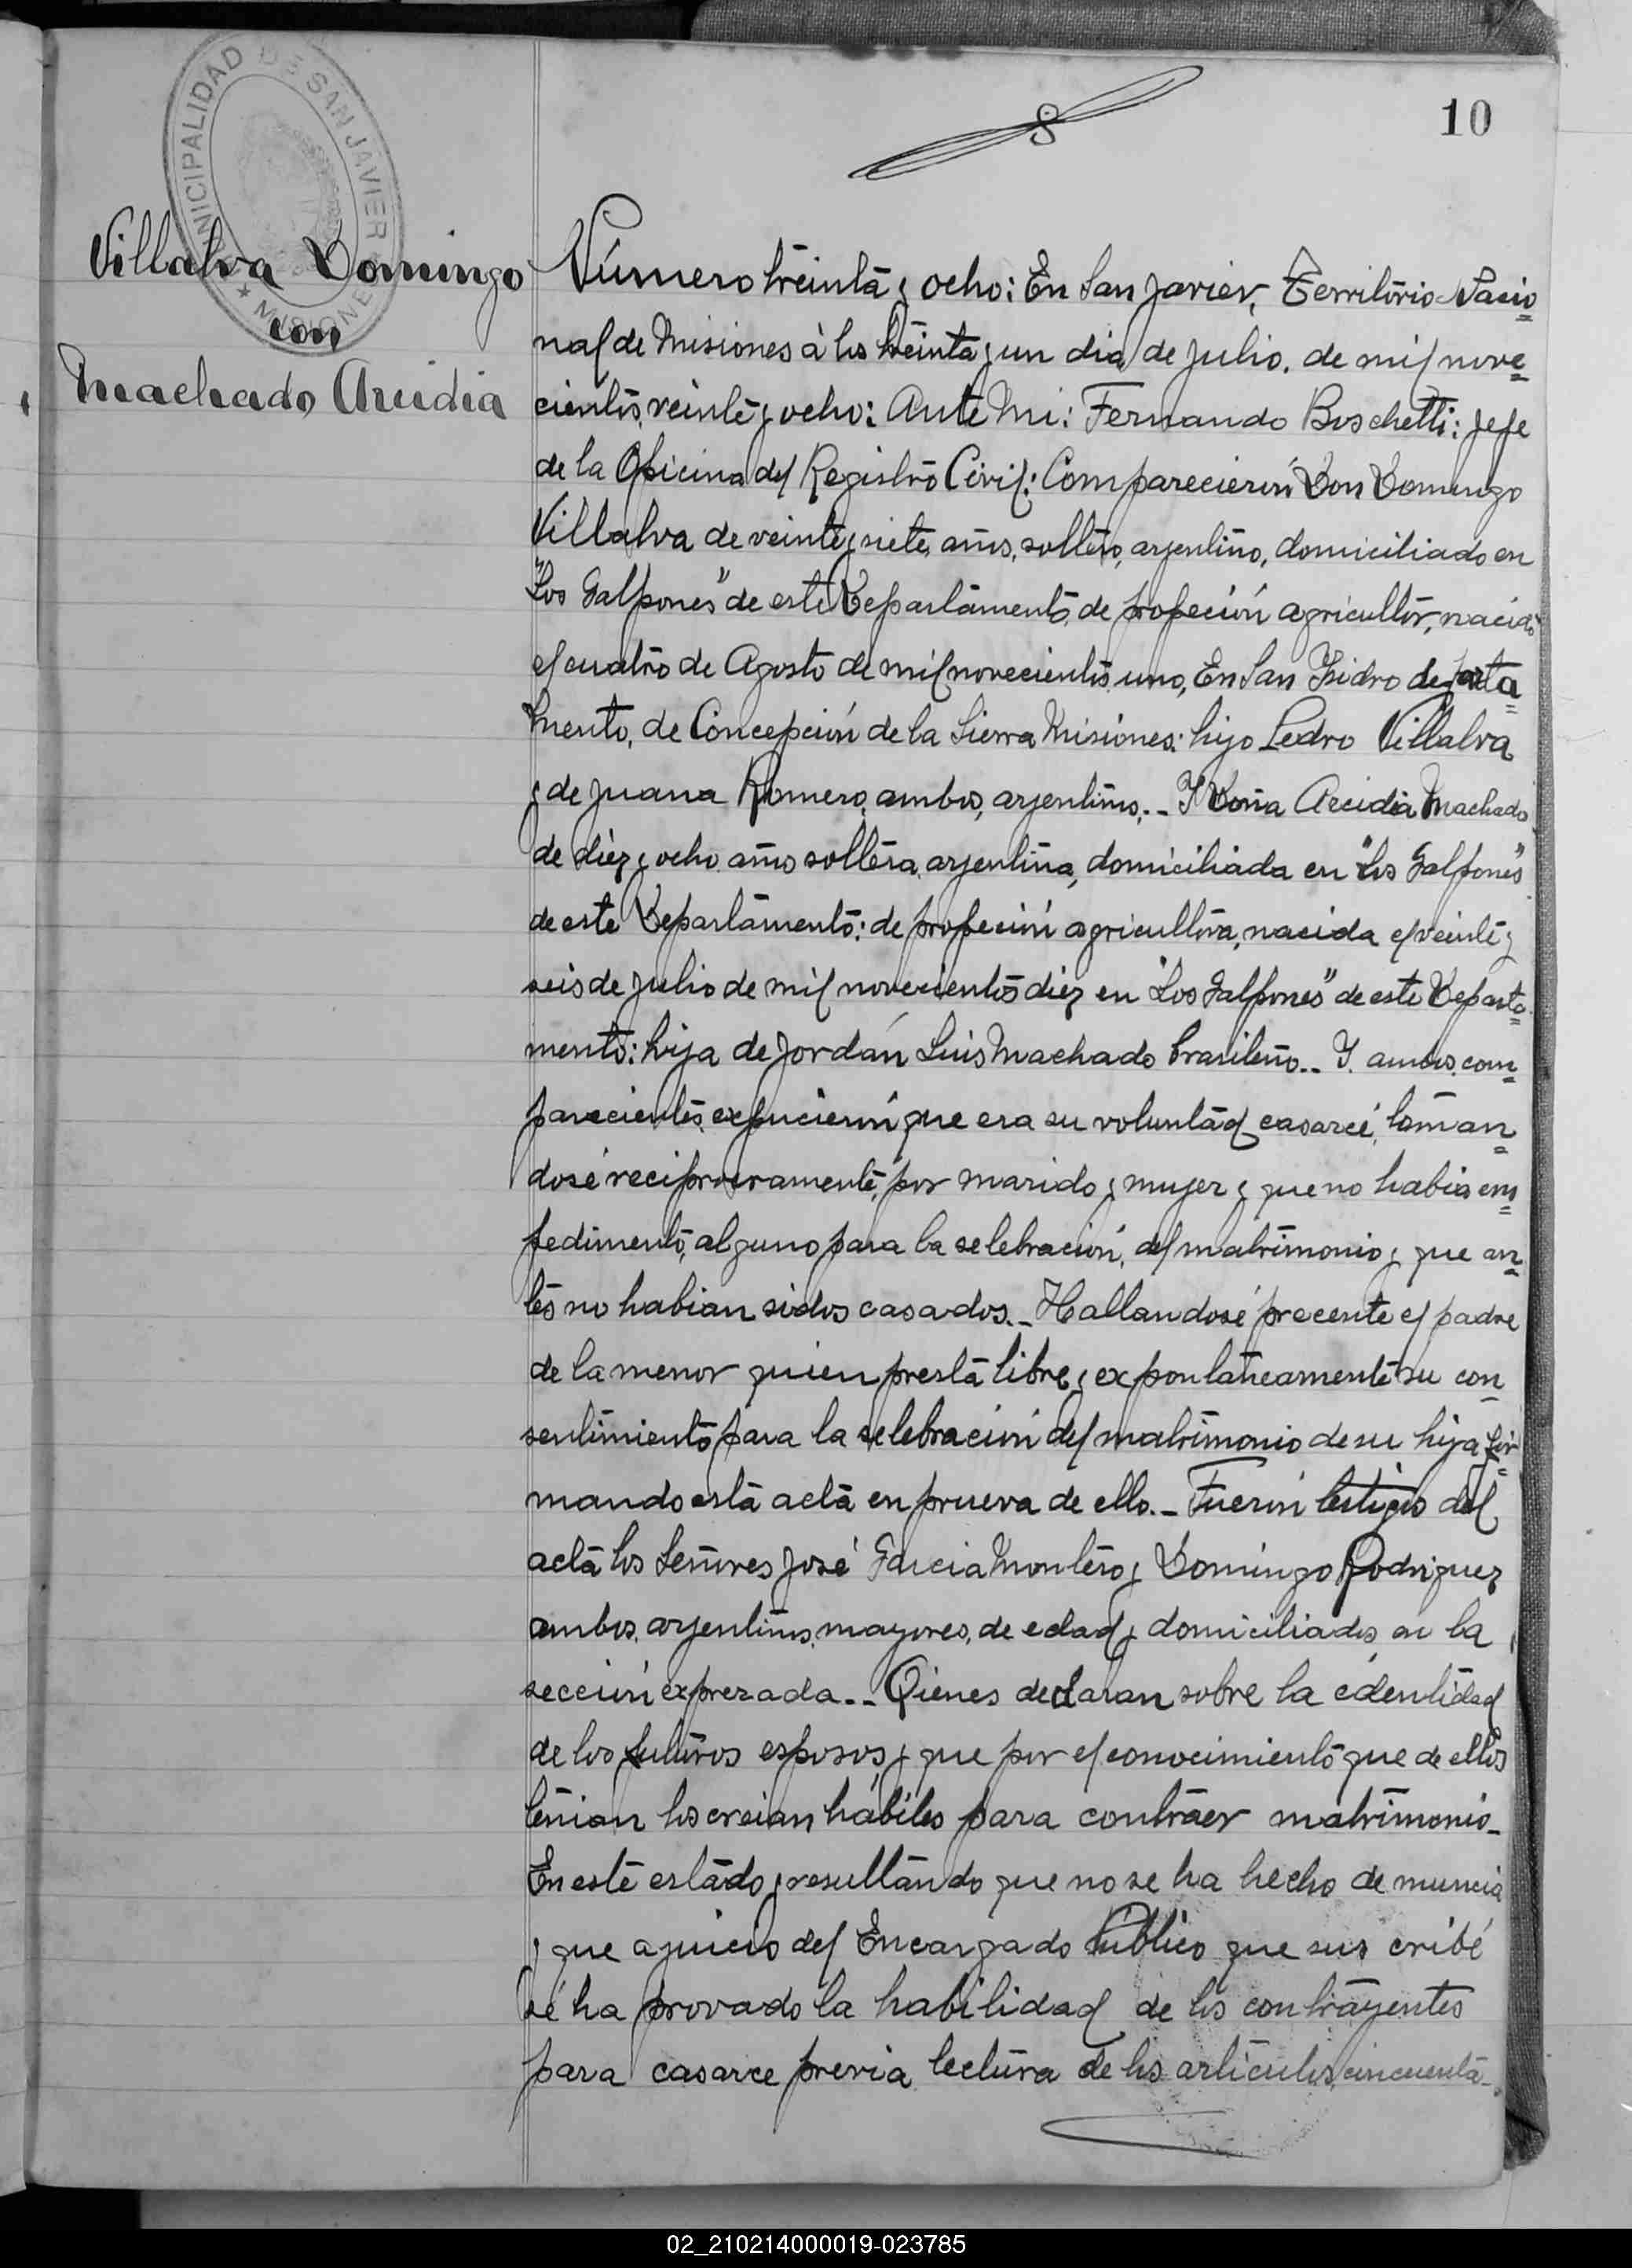 10
MUNICIPALIDAD DE SAN JAVIER
★ MISIONES
Villalva Domingo
con
Machado Arcidia
Número treinta y ocho: En San Javier, Territorio Nacio
nal de Misiones à los treinta y un dia de Julio, de mil nove
cientos veinte y ocho: Ante Mi: Fernando Boschetti: Jefe
de la Oficina del Registro Civil: Comparecieron Don Domingo
Villalva de veinte y siete años, soltero, argentino, domiciliado en
"Los Galpones" de este Departamento, de profeción agricultor, nacido
el cuatro de Agosto de mil novecientos uno, En San Ysidro departa
mento, de Concepción de la Sierra Misiones: hijo Pedro Villalva
y de Juana Romero, ambos, argentinos.- Y Doña Arcidia Machado
de diez y ocho años soltera, argentina, domiciliada en "Los Galpones"
de este Departamento: de profeción agricultora, nacida el veinte y
seis de Julio de mil novecientos diez en "Los Galpones" de este Departa
mento: hija de Jordán Luis Machado brasileño.- Y. ambos com
parecientes expucierón que era su voluntad casarcé, toman
dosé reciprocamente, por marido y mujer y que no habia em
pedimento, alguno para la selebración, del matrimonio y que an
tes no habian sidos casados.- Hallandosé precente el padre
de la menor quien presta libre y expontaneamente su con
sentimiento para la selebración del matrimonio de su hija fir
mando esta acta en prueva de ello.- Fuerón testigos del
acta los Señores José Garcia Montero y Domingo Rodriguez
ambos, argentinos, mayores, de edad y domiciliados en la
sección exprezada.- Qienes declaran sobre la edentidad
de los futuros esposos y que por el conocimiento que de ellos
tenian los creian hábiles para contraer matrimonio-
En este estado y resultando que no se ha hecho de nuncia
y que a juicio del Encargado Público que sus cribé
sé ha provado la habilidad de los contrayentes
para casarce previa lectura de los articulos, cincuenta-
02_210214000019-023785